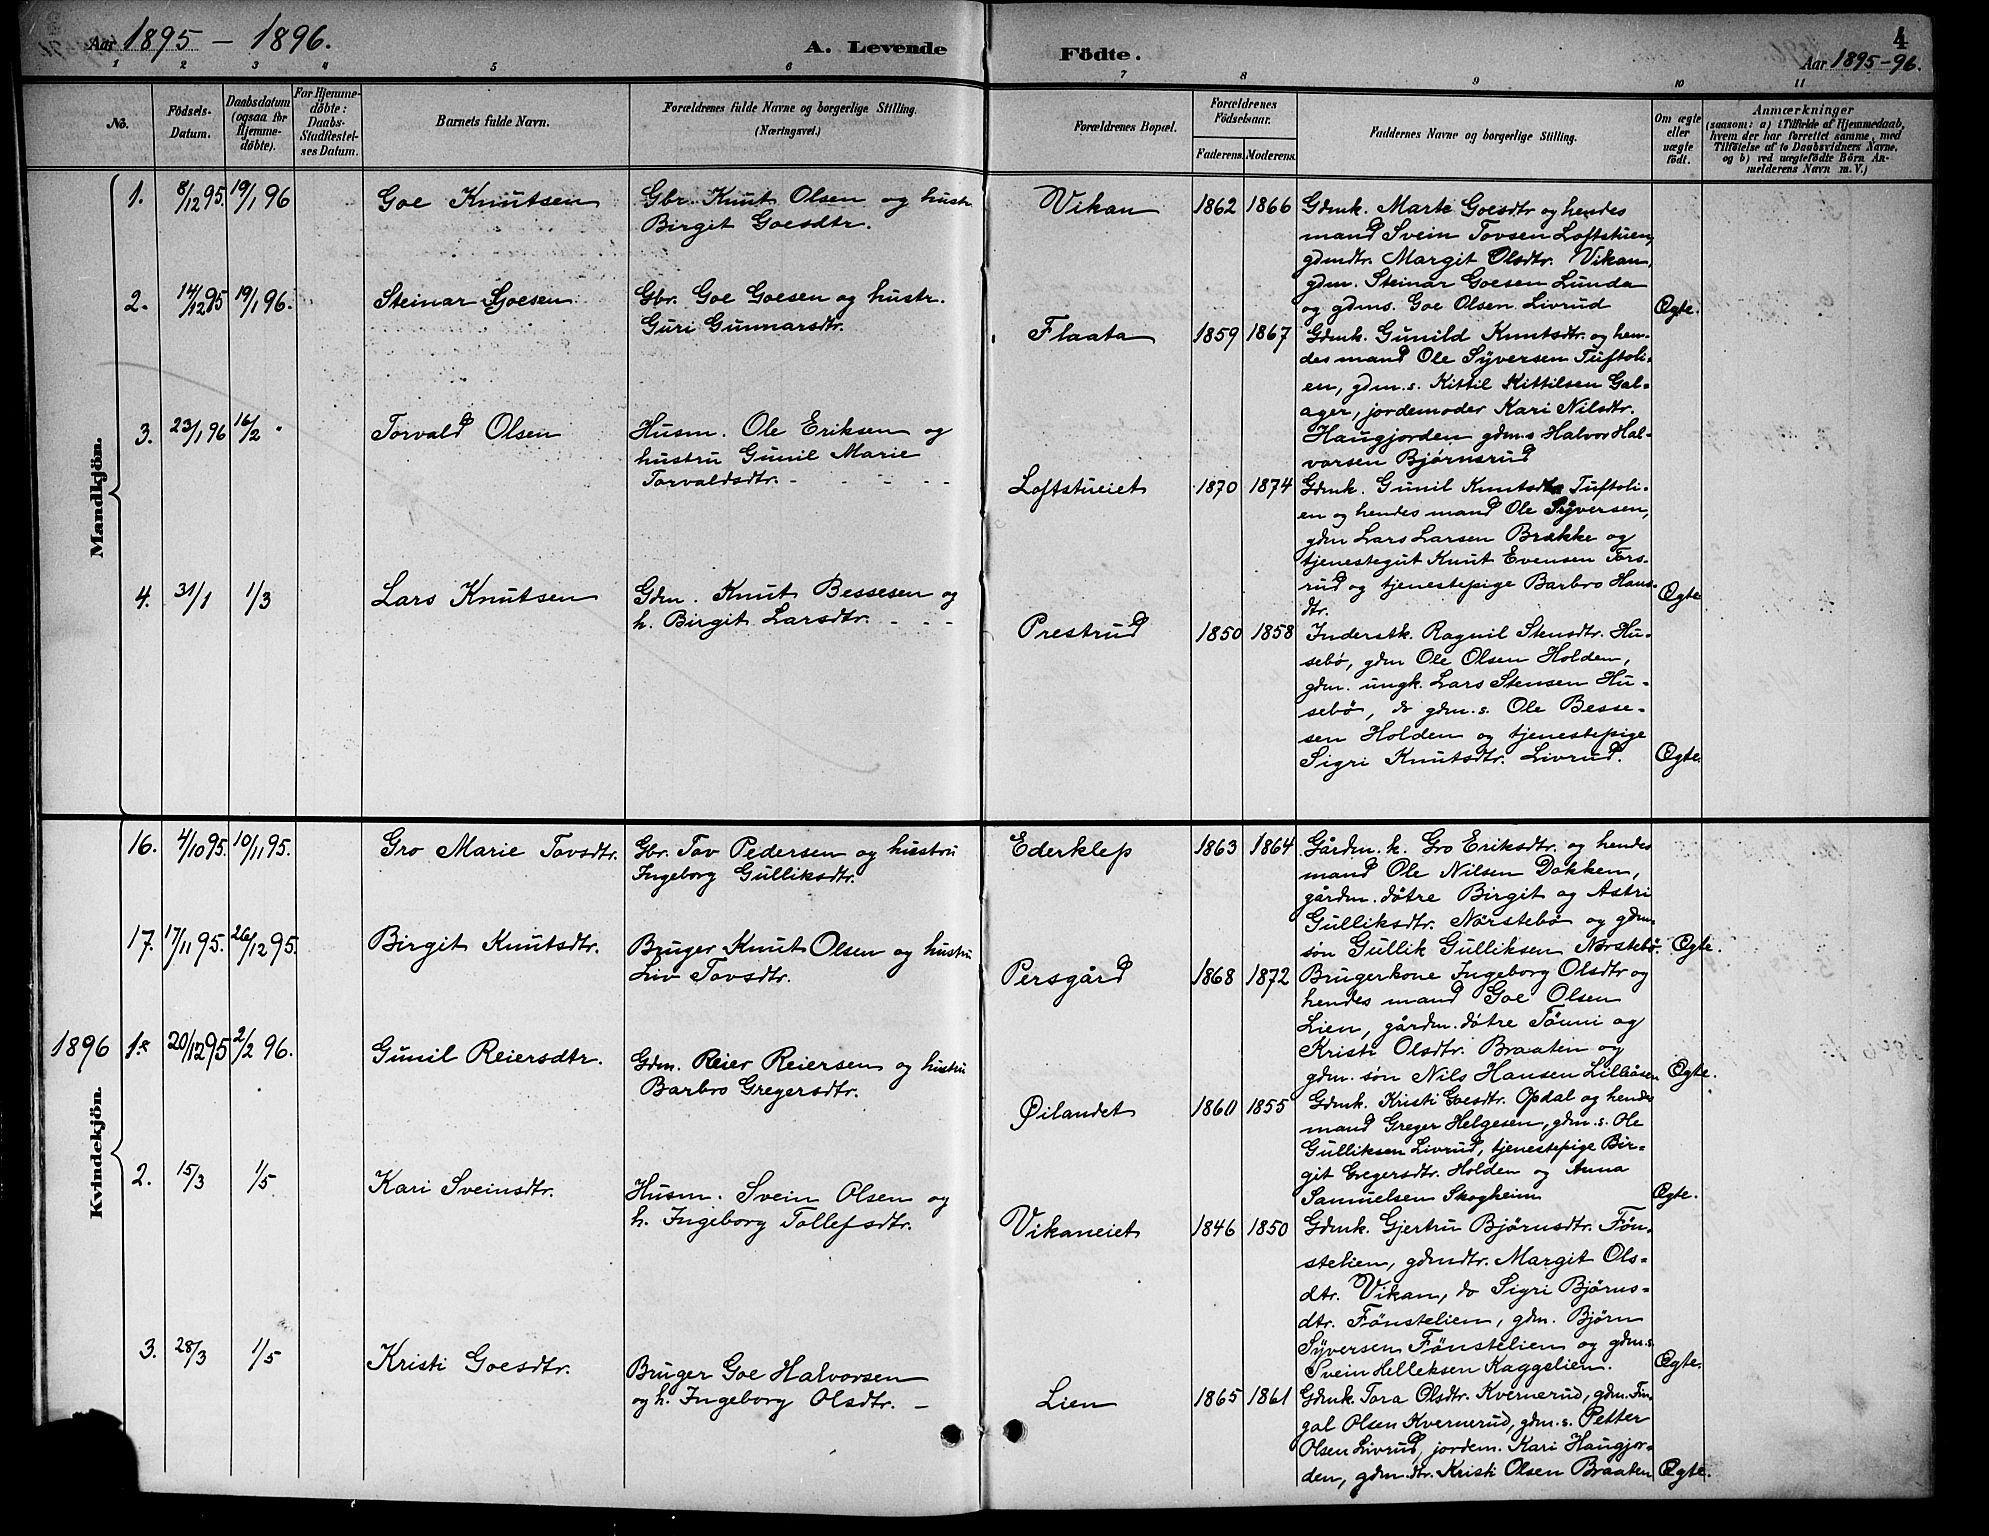 Aar 1895 - 1896.
A. Levende
Födte.
4
Aar 1895-96.
1 2 3 4 5 6 7 8 9 10 11
No.
Födsels-
Datum.
Daabsdatum
(ogsaa för
Hjemme-
døbte).
For Hjemme-
döbte:
Daabs-
Stadfæstel-
ses Datum.
Barnets fulde Navn.
Forældrenes fulde Navne og borgerlige Stilling.
(Næringsvei.)
Forældrenes Bopæl.
Forældrenes
Födselsaar.
Faderens. Moderens.
Faddernes Navne og borgerlige Stilling.
Om ægte
eller
uægte
födt.
Anmærkninger
(saasom: a) i Tilfælde af Hjemmedaab,
hvem der har forrettet samme, med
Tilföielse af to Daabsvidners Navne,
og b) ved uægtefödte Börn An-
melderens Navn m. V.)
Mandkjön.
1. 8/12 95. 19/1 96 Goe Knutsen
Gbr. Knut Olsen og hustr.
Birgit Goesdtr.
Vikan 1862 1866
Gdmk. Marte Goesdtr og hendes
mand Svein Tovsen Loftstuen,
gdmdtr. Margit Olsdtr. Vikan,
gdm. Steinar Goesen Lunda
og gdms. Goe Olsen Livrud
Ægte.
2. 14/12 95 19/1 96. Steinar Goesen
Gbr. Goe Goesen og hustr.
Guri Gunnarsdtr.
Flaata 1859 1867
Gdmk. Gunild Knutsdtr. og hen-
des mand Ole Syversen Tuftoli-
en, gdm.s. Kittil Kittilsen Gal-
ager, jordemoder Kari Nilsdtr.
Haugjorden gdm.s Halvor Hal-
vorsen Bjørnsrud
3. 23/1 96 16/2 " Torvald Olsen
Husm. Ole Eriksen og
hustru Gunil Marie
Torvaldsdtr.
Loftstueiet 1870 1874
Gdmk. Gunil Knutsdtr Tuftoli-
en og hendes mand Ole Syversen,
gdm Lars Larsen Brække og
tjenestegut Knut Evensen Fors-
rud og tjenestepige Barbro Hans-
dtr.
Ægte
4. 31/1 1/3 Lars Knutsen
Gdm. Knut Bessesen og
h. Birgit Larsdtr.
Prestrud 1850 1858
Inderstk. Ragnil Stensdtr. Hu-
sebø, gdm Ole Olsen Holden,
gdm. ungk. Lars Stensen Hu-
sebø, do gdm.s. Ole Besse-
sen Holden og tjenestepige
Sigri Knutsdtr. Livrud.
Ægte.
Kvindekjön.
16. 4/10 95. 10/11 95. Gro Marie Tovsdtr.
Gbr. Tov Pedersen og hustru
Ingeborg Gulliksdtr.
Ederklep 1863 1864
Gårdm. k. Gro Eriksdtr. og hendes
mand Ole Nilsen Dokken,
gårdm. døtre Birgit og Astri
Gulliksdtr. Nørstebø og gdm-
søn Gullik Gulliksen Nørstebø.
Ægte.
17. 17/11 95. 26/12 95. Birgit Knutsdtr.
Bruger Knut Olsen og hustru
Liv Tovsdtr.
Persgård 1868 1872
Brugerkone Ingeborg Olsdtr og
hendes mand Goe Olsen
Lien, gårdm. døtre Tønni og
Kristi Olsdtr. Braaten og
gdm. søn Nils Hansen Lilleåsen
Ægte.
1896 1. 20/12 95 2/2 96. Gunil Reiersdtr.
Gdm. Reier Reiersen og hustru
Barbro Gregersdtr.
Øilandet 1860 1855
Gdmk. Kristi Goesdtr. Opdal og hendes
mand Greger Helgesen, gdm.s. Ole
Gulliksen Livrud, tjenestepige Bir-
git Gregersdtr. Holden og Anna
Samuelsen Skogheim
Ægte.
2. 15/3 1/5 Kari Sveinsdtr.
Husm. Svein Olsen og
h. Ingeborg Tollefsdtr.
Vikaneiet 1846 1850
Gdmk. Gjertru Bjørnsdtr. Føn-
stelien, gdmdtr. Margit Ols-
dtr. Vikan, do Sigri Bjørns-
dtr. Fønstelien, gdm. Bjørn
Syversen Fønstelien og gdm.s.
Svein Helleksen Kaggelien.
Ægte.
3. 28/3 1/5 Kristi Goesdtr.
Bruger Goe Halvorsen
og h. Ingeborg Olsdtr.
Lien 1865 1861
Gdmk. Tora Olsdtr. Kvernerud, gdm. Fin-
gal Olsen Kvernerud, gdm.s. Petter
Olsen Livrud, jordem. Kari Haugjor-
den, gdm.dtr. Kristi Olsen Braaten
Ægte.